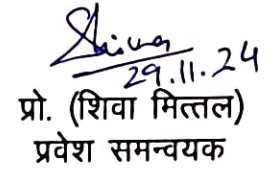 Shiva
29.11.24
प्रो. (शिवा मित्तल)
प्रवेश समन्वयक